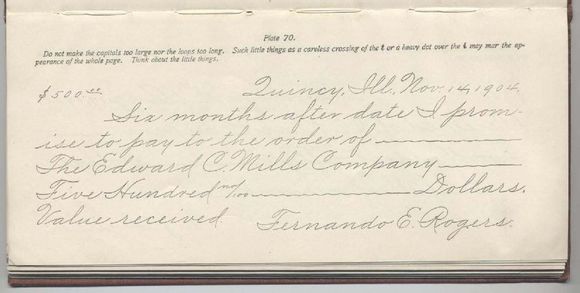 Plate 70.
Do not make the capitals too large nor the loops too long. Such little things as a careless crossing of the t or a heavy dot over the i, may mar the ap-
pearance of the whole page. Think about the little things.
$500.00 Quincy, Ill., Nov. 14, 1904.
Six months after date I prom-
ise to pay to the order of
The Edward C. Mills Company
Five Hundred no/100 Dollars.
Value received. Fernando E. Rogers.